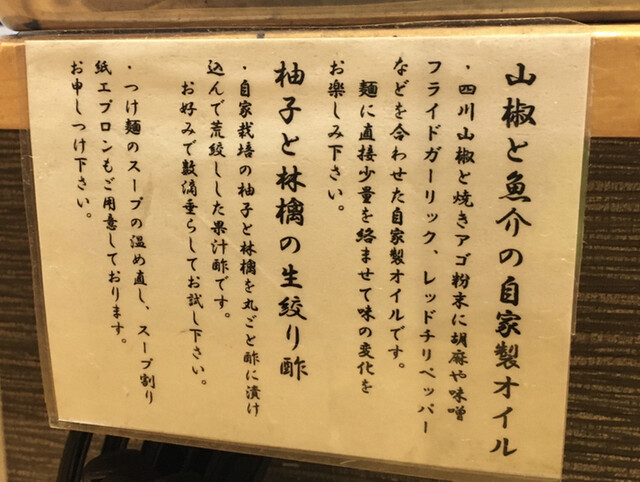 山椒と魚介の自家製オイル
・四川山椒と焼きアゴ粉末に胡麻や味噌
フライドガーリック、レッドチリペッパー
などを合わせた自家製オイルです。
麺に直接少量を絡ませて味の変化を
お楽しみ下さい。
柚子と林檎の生絞り酢
・自家栽培の柚子と林檎を丸ごと酢に漬け
込んで荒絞しした果汁酢です。
お好みで数滴垂らしてお試し下さい。
・つけ麺のスープの温め直し、スープ割り
紙エプロンもご用意しております。
お申しつけ下さい。